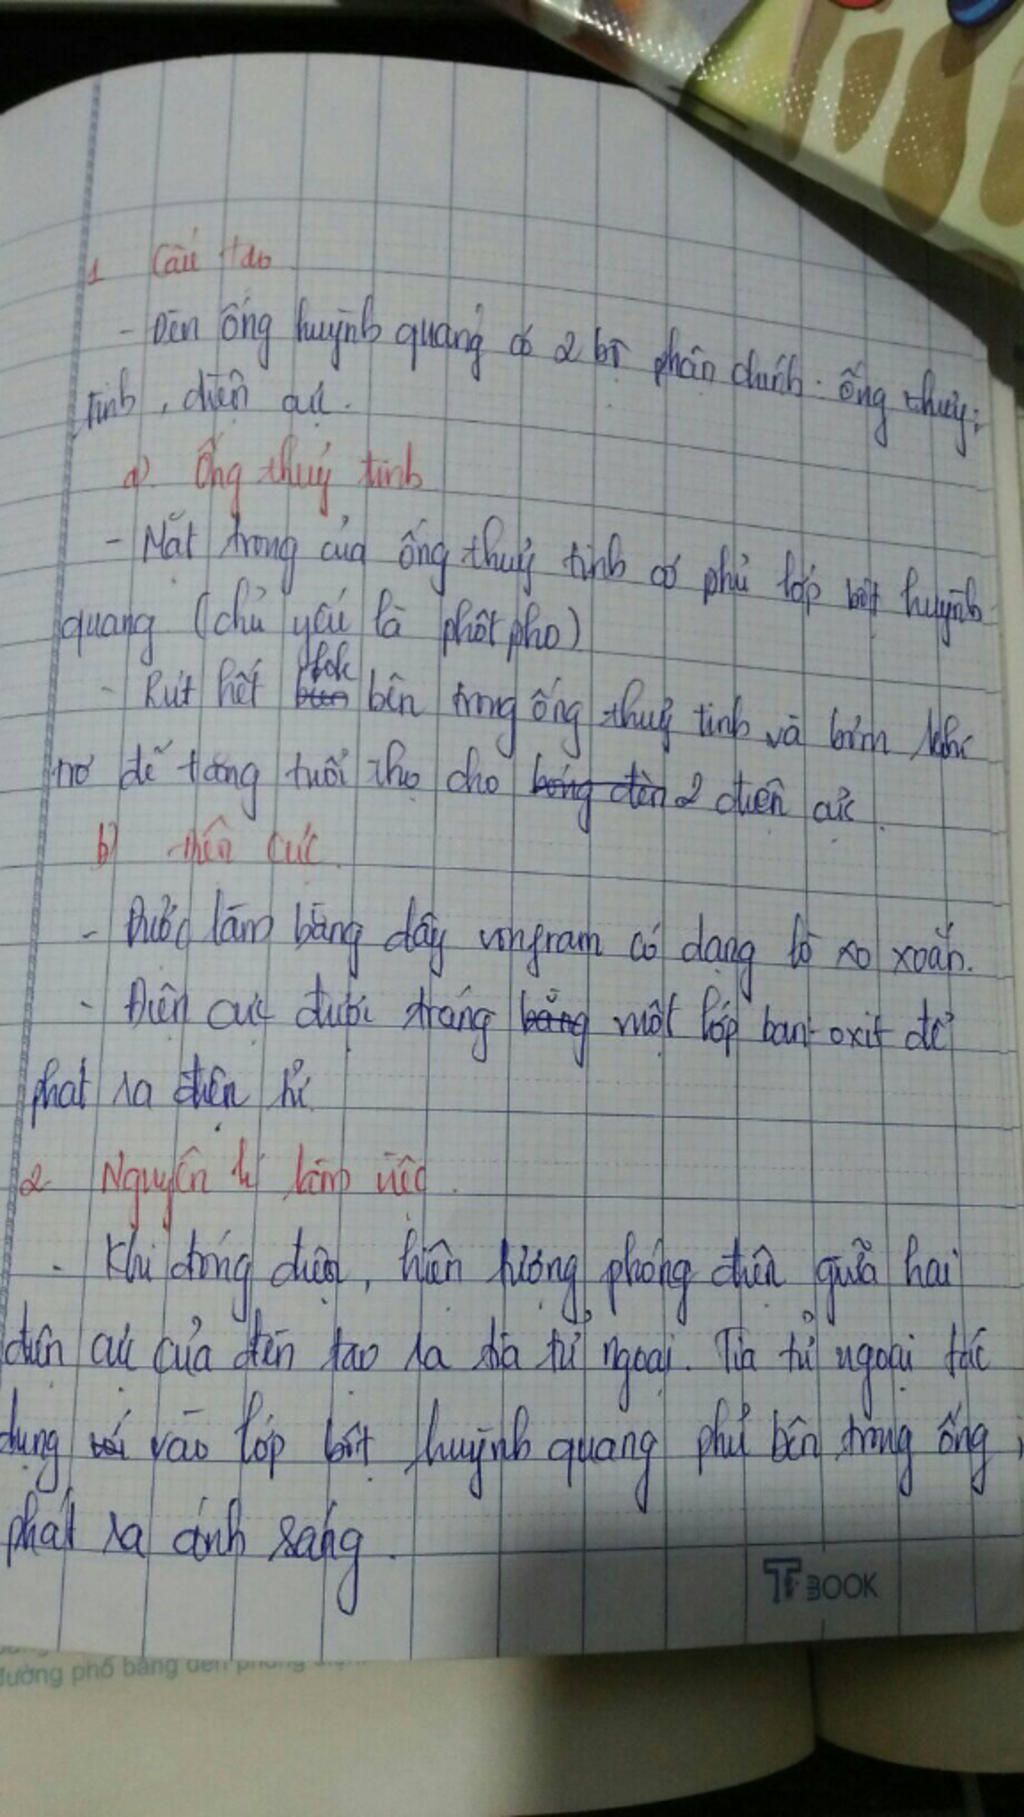 1 Cấu tạo
- Đèn ống huỳnh quang có 2 bộ phận chính: ống thuỷ
tinh, điện cực.
a) Ống thuỷ tinh
- Mặt trong của ống thuỷ tinh có phủ lớp bột huỳnh
quang (chủ yếu là phôtpho)
- Rút hết bên trong ống thuỷ tinh và bơm khí
trơ để tăng tuổi thọ cho bóng đèn 2 điện cực.
b) điện cực.
- Được làm bằng dây vonfram có dạng lò xo xoắn.
- Điện cực được tráng bằng một lớp bari-oxit để
phát ra điện tử
2 Nguyên lý làm việc.
- Khi đóng điện, hiện tượng phóng điện giữa hai
điện cực của đèn tạo ra tia tử ngoại. Tia tử ngoại tác
dụng với vào lớp bột huỳnh quang phủ bên trong ống,
phát ra ánh sáng.
TT BOOK
đường phố bằng đèn phóng điện